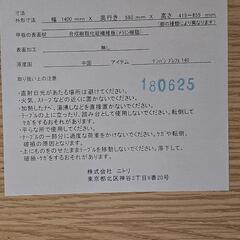 寸法
外形寸法 幅 1400 mm X 奥行き 590 mm X 高さ 415~555 mm
(脚の種類により異なります)
甲板の表面材 合成樹脂化粧繊維板(メラミン樹脂)
表面加工 無し
原産国 中国 アイテム
取り扱い上の注意
180625
・直射日光があたる場所は避けてください。
・火気、ストーブなどの近くに置かないでください。
・加熱したなべ、湯沸しなどを直接置かないでください。
・テーブルの上に立ったり、踏み台として使用しないでください。転倒して
ケガをするおそれがあります。
・平らな所で使用してください。
・テーブルに腰かけたりしないでください。ケガや転倒、
破損の原因となります。
・上にものをのせたままテーブルを移動しないでください。落下して、
破損・ケガをするおそれがあります。
株式会社 ニトリ
東京都北区神谷3丁目6番20号